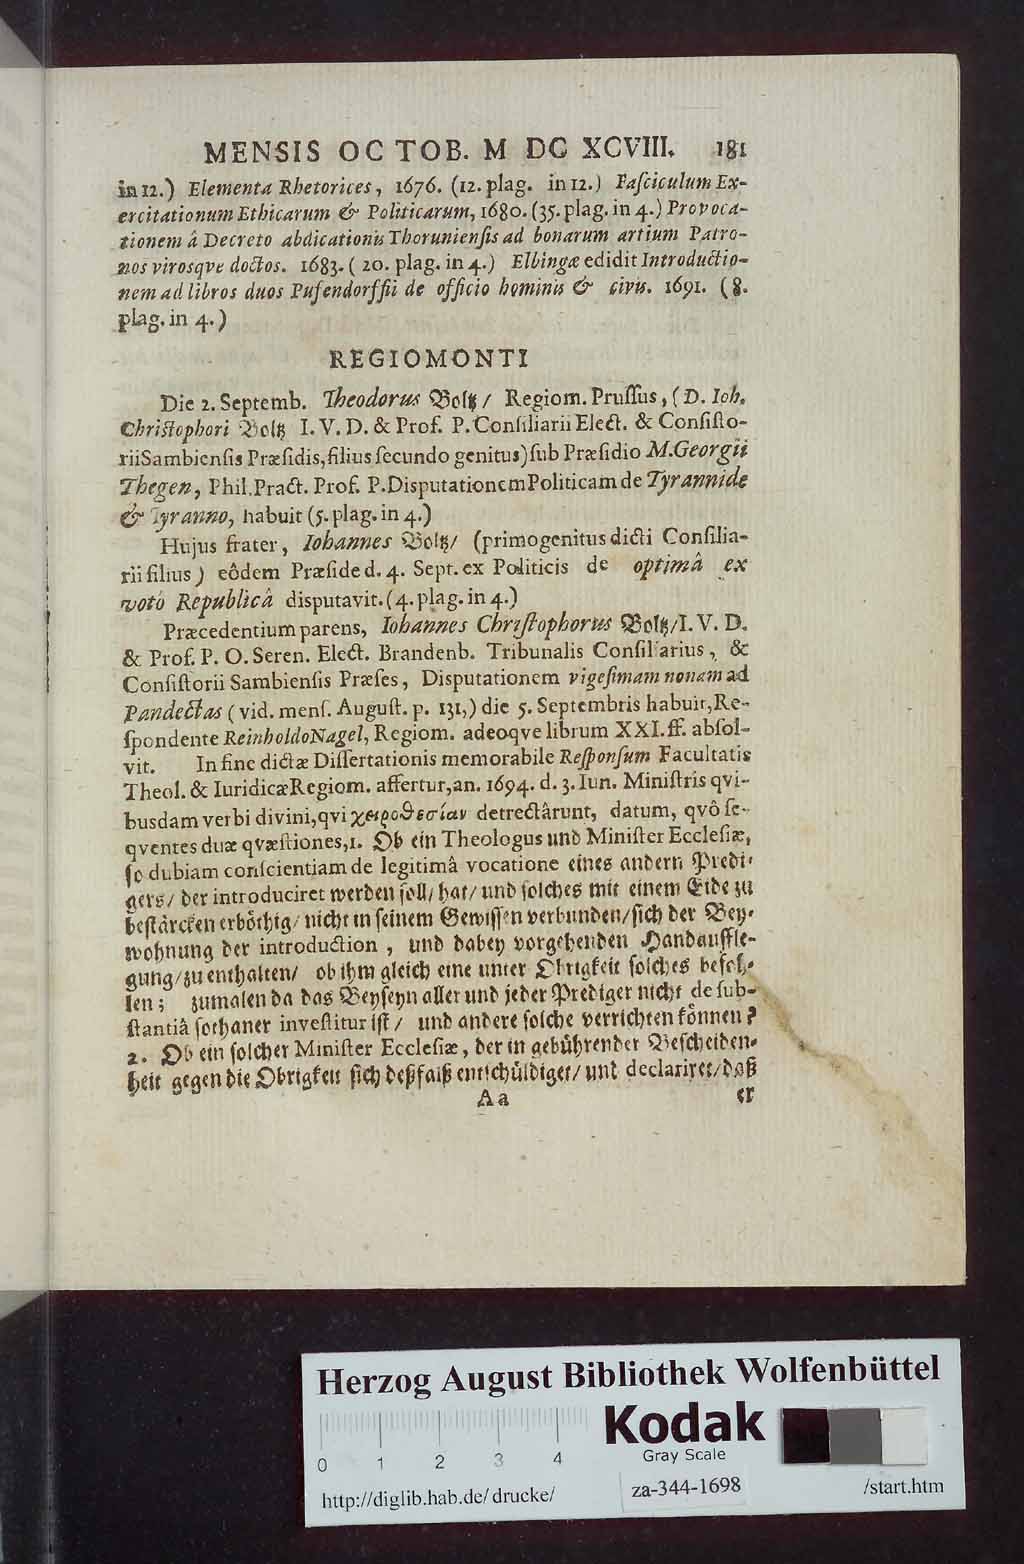 MENSIS OCTOB. M DC XCVIII. 181
in 12.) Elementa Rhetorices, 1676. (12. plag. in 12.) Faſciculum Ex-
ercitationum Ethicarum & Politicarum, 1680. (35. plag. in 4.) Provoca-
tionem â Decreto abdicationis Thorunienſis ad bonarum artium Patro-
nos virosqve doctos. 1683. (20. plag. in 4.) Elbingæ edidit Introductio-
nem ad libros duos Pufendorffii de officio hominis & civis. 1691. (8.
plag. in 4.)
REGIOMONTI
Die 2. Septemb. Theodorus Boltz/ Regiom. Pruſſus, (D. Ioh.
Chriſtophori Boltz I. V. D. & Prof. P. Conſiliarii Elect. & Conſiſto-
rii Sambienſis Præſidis, filius ſecundo genitus) ſub Præſidio M. Georgii
Thegen, Phil. Pract. Prof. P. Disputationem Politicam de Tyrannide
& Tyranno, habuit (5. plag. in 4.)
Hujus frater, Iohannes Boltz/ (primogenitus dicti Conſilia-
rii filius) eôdem Præſide d. 4. Sept. ex Politicis de optimâ ex
voto Republicâ disputavit. (4. plag. in 4.)
Præcedentium parens, Iohannes Chriſtophorus Boltz/ I. V. D.
& Prof. P. O. Seren. Elect. Brandenb. Tribunalis Conſiliarius, &
Conſiſtorii Sambienſis Præſes, Disputationem vigeſimam nonam ad
Pandectas (vid. menſ. Auguſt. p. 131,) die 5. Septembris habuit, Re-
ſpondente Reinholdo Nagel, Regiom. adeoqve librum XXI. ff. abſol-
vit. In fine dictæ Diſſertationis memorabile Reſponſum Facultatis
Theol. & Iuridicæ Regiom. affertur, an. 1694. d. 3. Iun. Miniſtris qvi-
busdam verbi divini, qvi χειροθεσίαν detrectârunt, datum, qvô ſe-
qventes duæ qvæſtiones, 1. Ob ein Theologus und Miniſter Eccleſiæ,
ſo dubiam conſcientiam de legitimâ vocatione eines andern Predi-
gers/ der introduciret werden ſoll/ hat/ und ſolches mit einem Eide zu
beſtärcken erböthig/ nicht in ſeinem Gewiſſen verbunden/ ſich der Bey-
wohnung der introduction, und dabey vorgehenden Handauffle-
gung/ zu enthalten/ ob ihm gleich eine unter Obrigkeit ſolches befoh-
len; zumalen da das Beyſeyn aller und jeder Prediger nicht de ſub-
ſtantiâ ſothaner inveſtitur iſt/ und andere ſolche verrichten können?
2. Ob ein ſolcher Miniſter Eccleſiæ, der in gebührender Beſcheiden-
heit gegen die Obrigkeit ſich deßfalß entſchüldiget/ und declariret/ daß
Aa er
Herzog August Bibliothek Wolfenbüttel
Kodak
Gray Scale
0 1 2 3 4
http://diglib.hab.de/drucke/ za-344-1698 /start.htm